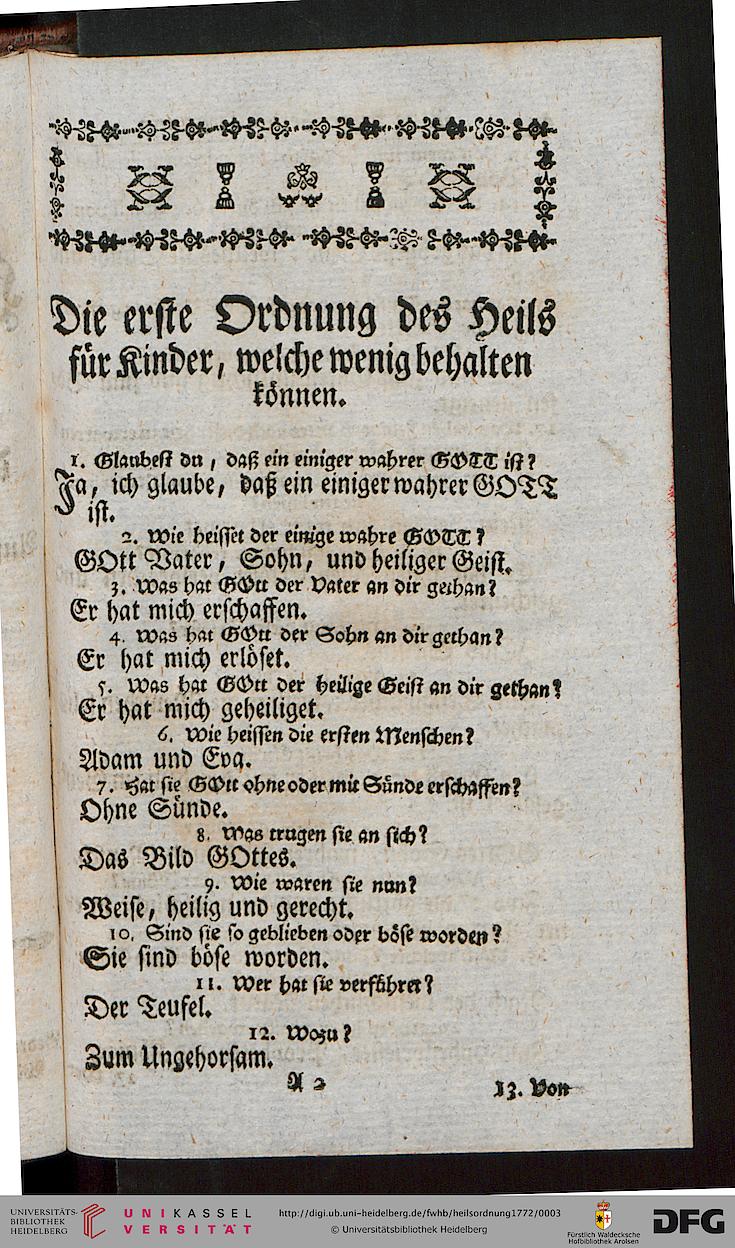 Die erste Ordnung des Heils
für Kinder, welche wenig behalten
können.
1. Glaubest du, daß ein einiger wahrer GOTT ist?
Ja, ich glaube, daß ein einiger wahrer GOTT
ist.
2. Wie heisset der einige wahre GOTT?
GOtt Vater, Sohn, und heiliger Geist.
3. Was hat GOtt der Vater an dir gethan?
Er hat mich erschaffen.
4. Was hat GOtt der Sohn an dir gethan?
Er hat mich erlöset.
5. Was hat GOtt der heilige Geist an dir gethan?
Er hat mich geheiliget.
6. Wie heissen die ersten Menschen?
Adam und Eva.
7. Hat sie GOtt ohne oder mit Sünde erschaffen?
Ohne Sünde.
8. Was trugen sie an sich?
Das Bild GOttes.
9. Wie waren sie nun?
Weise, heilig und gerecht.
10. Sind sie so geblieben oder böse worden?
Sie sind böse worden.
11. Wer hat sie verführet?
Der Teufel.
12. Wozu?
Zum Ungehorsam.
A 2 13. Von
UNIVERSITÄTS-
BIBLIOTHEK
HEIDELBERG
UNIKASSEL
VERSITÄT
http://digi.ub.uni-heidelberg.de/fwhb/heilsordnung1772/0003
© Universitätsbibliothek Heidelberg
Fürstlich Waldecksche
Hofbibliothek Arolsen
DFG